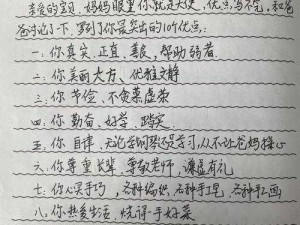 亲爱的宝贝，妈妈眼里你就是天使，优点写不完，和爸
爸讨论了下，罗列了你最突出的10个优点：
一、你真实、正直、善良，帮助弱者
二、你美丽大方、优雅文静
三、你节俭、不贪慕虚荣
四、你勤奋、好学、踏实
五、你自律，无论学钢琴还是学习，从不让爸妈操心
六、你尊重长辈，尊敬老师，谦虚有礼
七、你心灵手巧，各种编织、各种手工、各种画
八、你热爱生活，烧得一手好菜